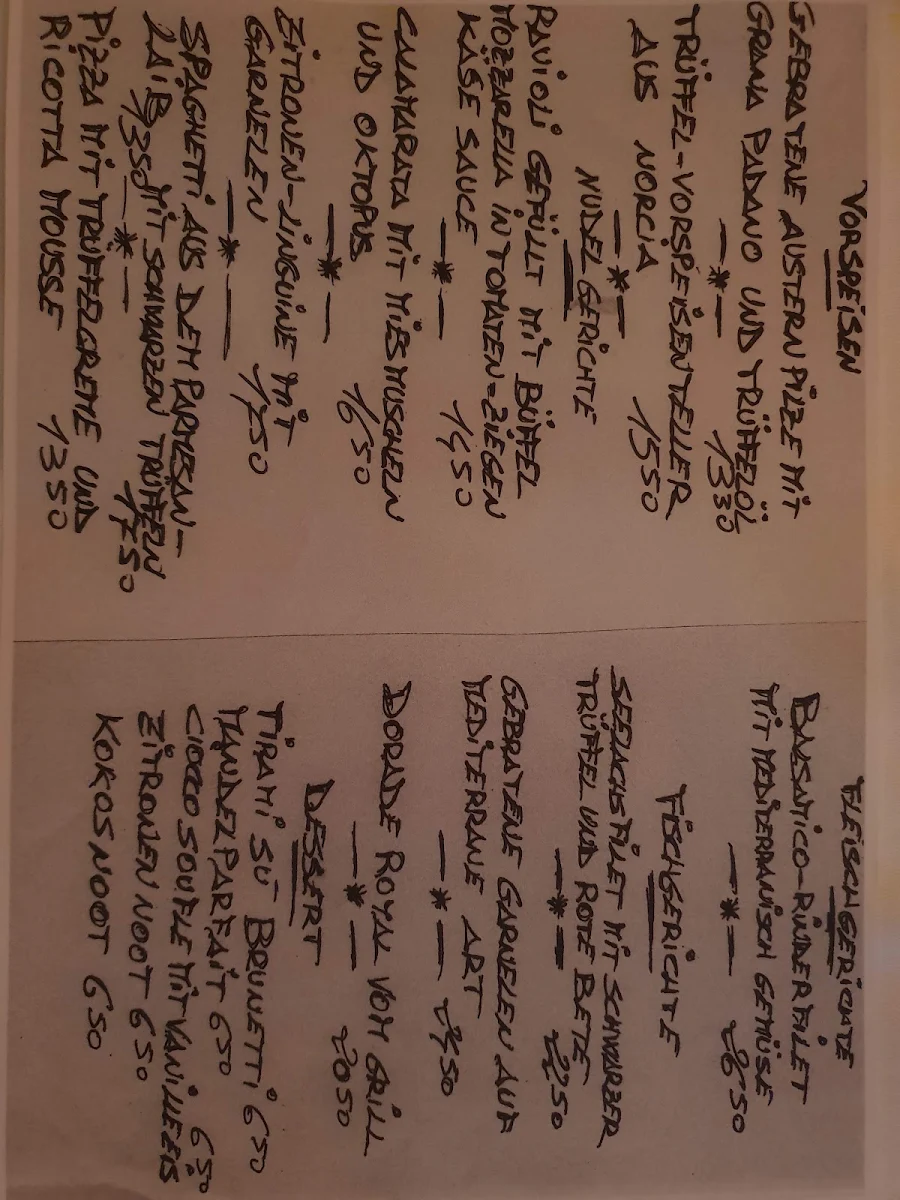 VORSPEISEN
GEBRATENE AUSTERNPILZE MIT
GRANA PADANO UND TRÜFFELÖL
—*— 1330
TRÜFFEL-VORSPEISENTELLER
AUS NORCIA 1550
—*—
NUDELGERICHTE
RAVIOLI GEFÜLLT MIT BÜFFEL
MOZZARELLA IN TOMATEN=ZIEGEN
KÄSE SAUCE 1450
—*—
CALAMARATA MIT MIESMUSCHELN
UND OKTOPUS 1650
—*—
ZITRONEN-LINGUINE MIT
GARNELEN 1750
—*—
SPAGHETTI AUS DEM PARMESAN-
LAIB MIT SCHWARZEN TRÜFFELN
1350 —*— 1750
PIZZA MIT TRÜFFELCREME UND
RICOTTA MOUSSE 1350
FLEISCHGERICHTE
BALSAMICO-RINDERFILET
MIT MEDITERRANISCH GEMÜSE
—*— 2650
FISCHGERICHTE
SEELACHSFILET MIT SCHWARZER
TRÜFFEL UND ROTE BETE
—*— 2250
GEBRATENE GARNELEN AUF
MEDITERRANE ART
—*— 2450
DORADE ROYAL VOM GRILL
—*— 2050
DESSERT
TIRAMI SÙ BRUNETTI 650
MANDELPARFAIT 650
CIOCCO SOUFLE MIT VANILLEEIS 650
ZITRONEN NOOT 650
KOKOS NOOT 650